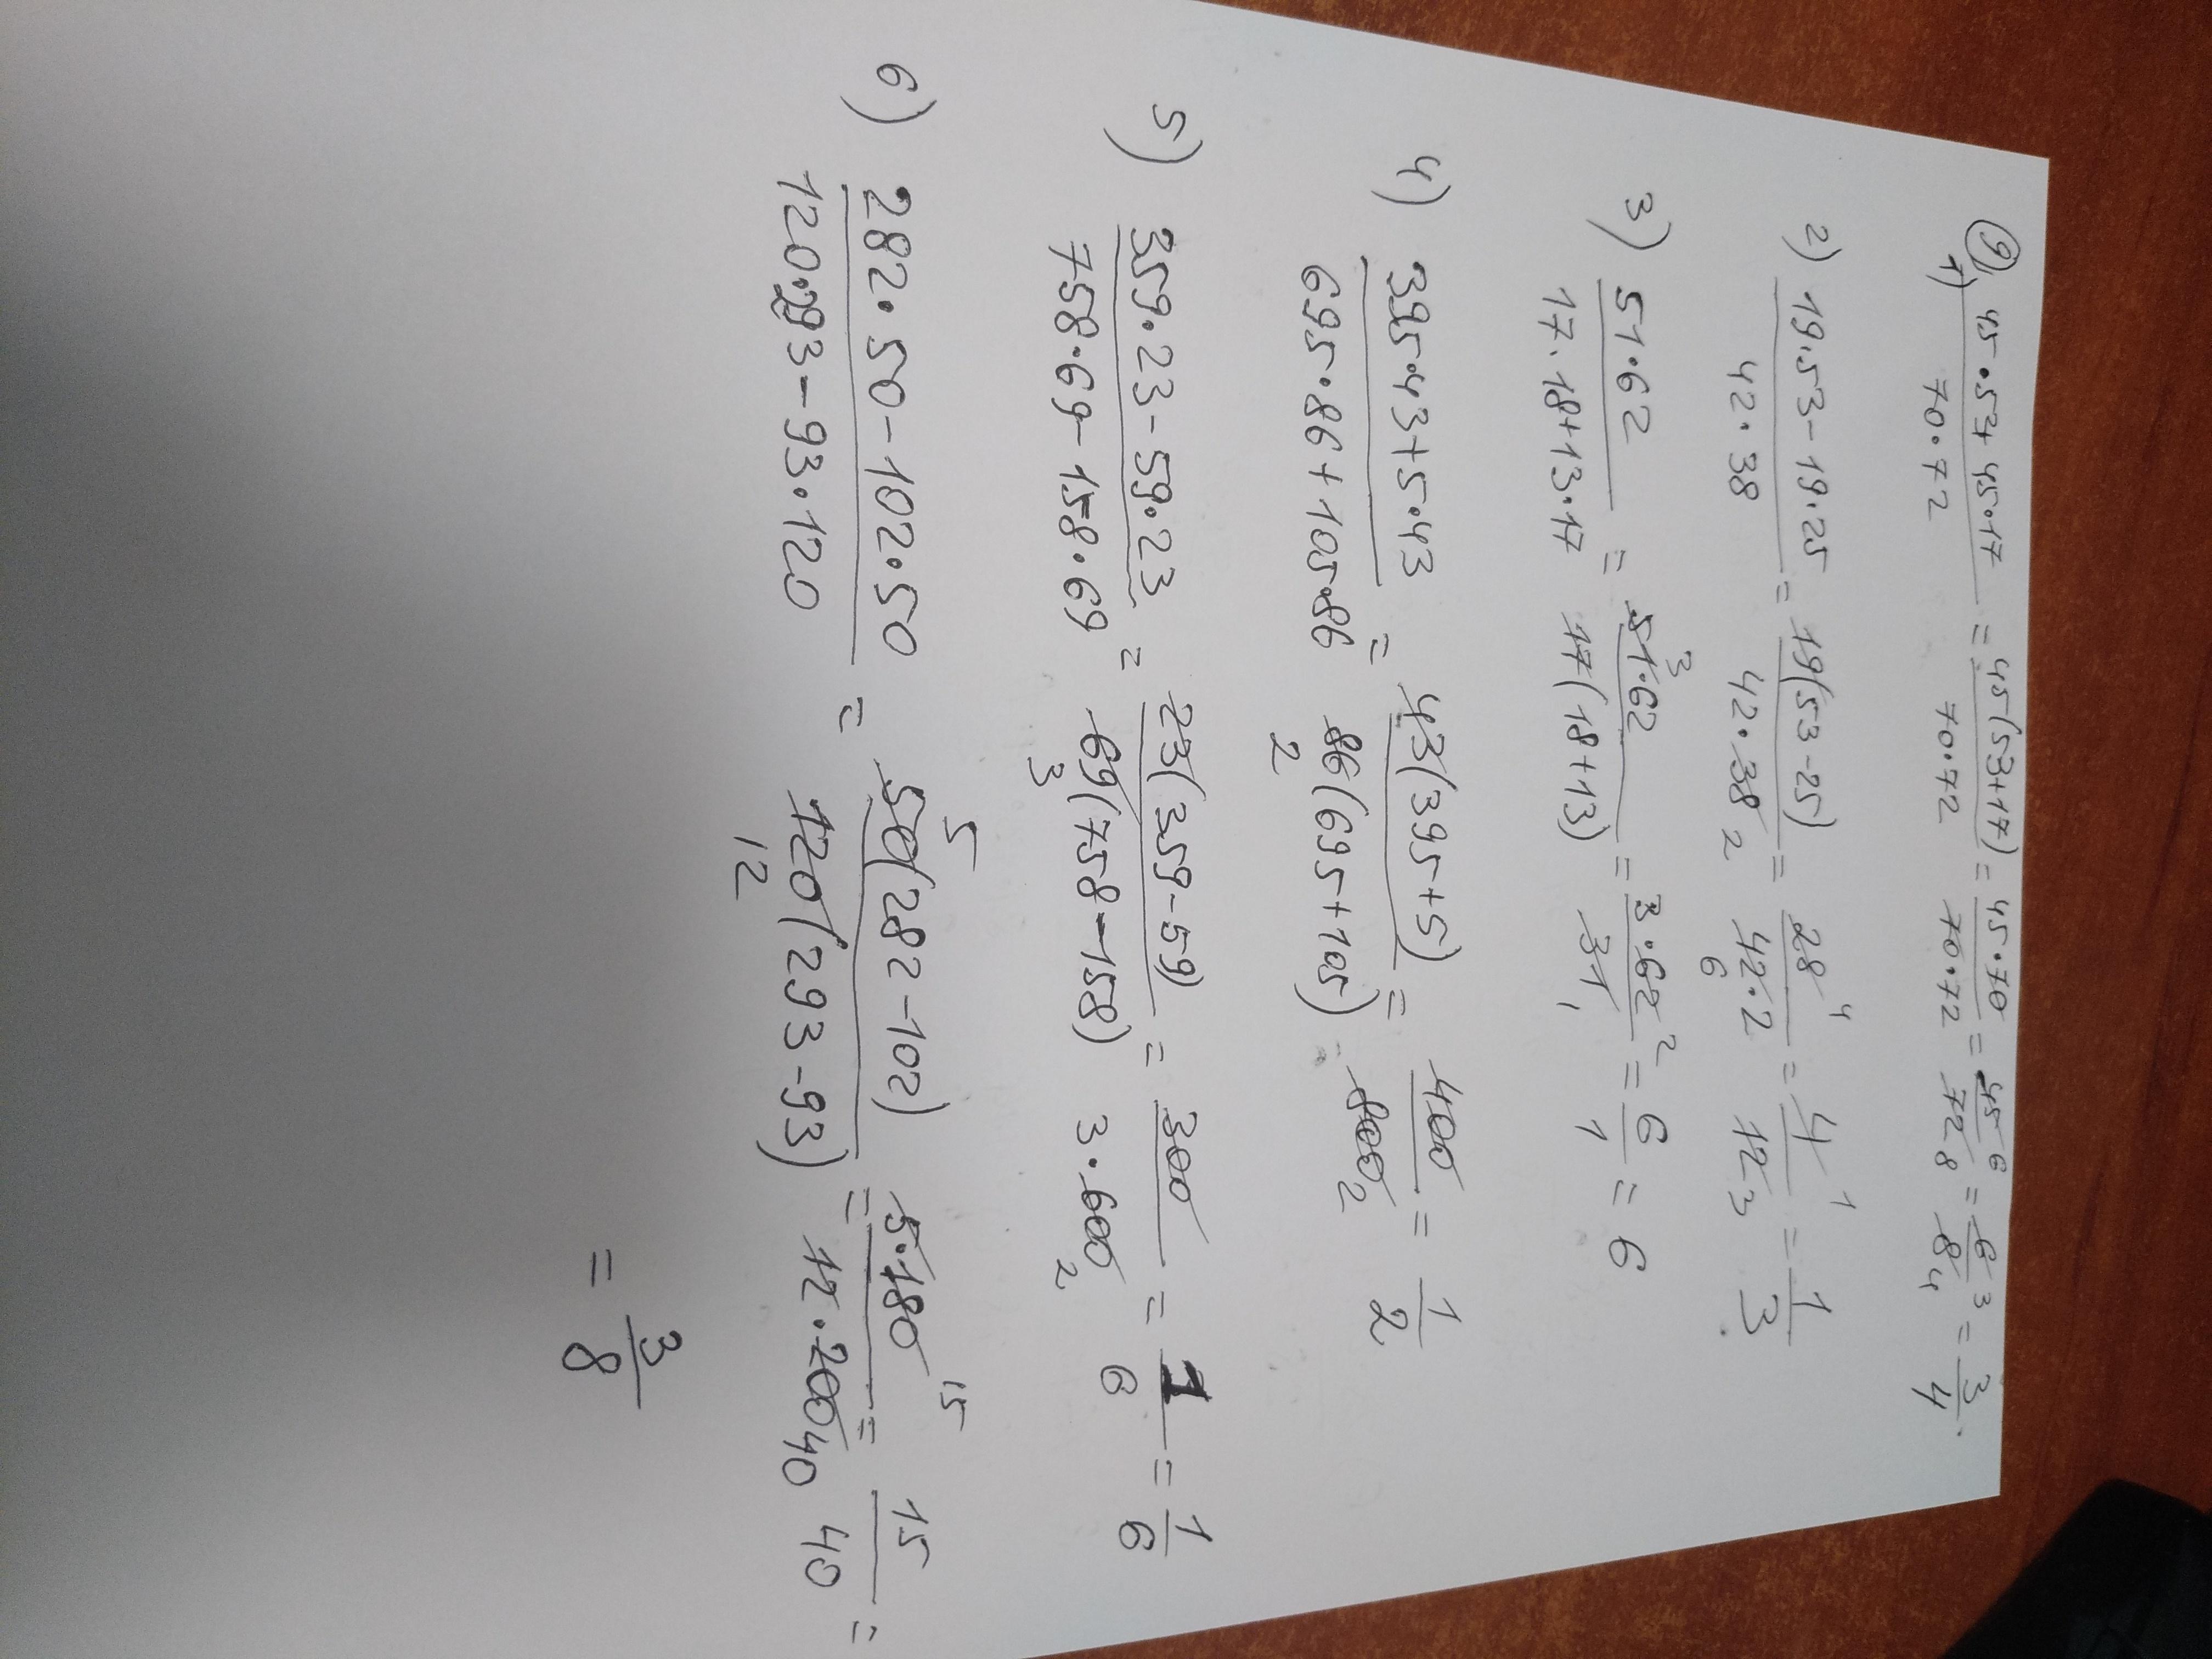 9)
1) 45·53+45·17/70·72 = 45(53+17)/70·72 = 45·70/70·72 = 45 6/72 8 = 6 3/8 4 = 3/4.
2) 19·53-19·25/42·38 = 19(53-25)/42·38 2 = 28 4/42·2 6 = 4 1/12 3 = 1/3
3) 51·62/17·18+13·17 = 3 51·62/17(18+13) = 3·62 2/31 1 = 6/1 = 6
4) 395·43+5·43/695·86+105·86 = 43(395+5)/86(695+105) 2 = 400/800 2 = 1/2
5) 359·23-59·23/758·69-158·69 = 23(359-59)/69(758-158) 3 = 300/3·600 2 = 1/6 = 1/6
6) 282·50-102·50/120·293-93·120 = 5 50(282-102)/120(293-93) 12 = 5·180 15/12·200 40 = 15/40 =
= 3/8